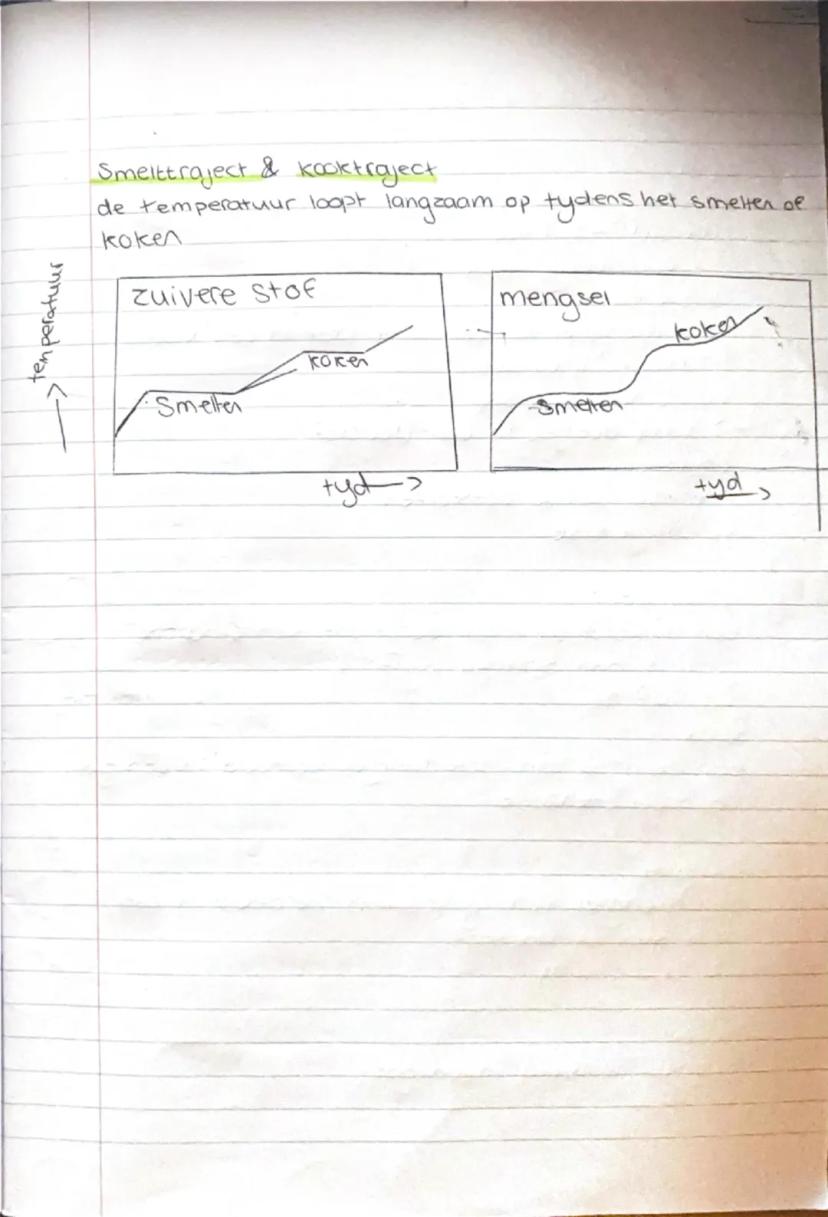 Smelttraject & kooktraject
de temperatuur loopt langzaam op tydens het smelten of
koken
temperatuur
zuivere stof
koken
Smelten
tyd
mengsel
koken
smelten
tyd